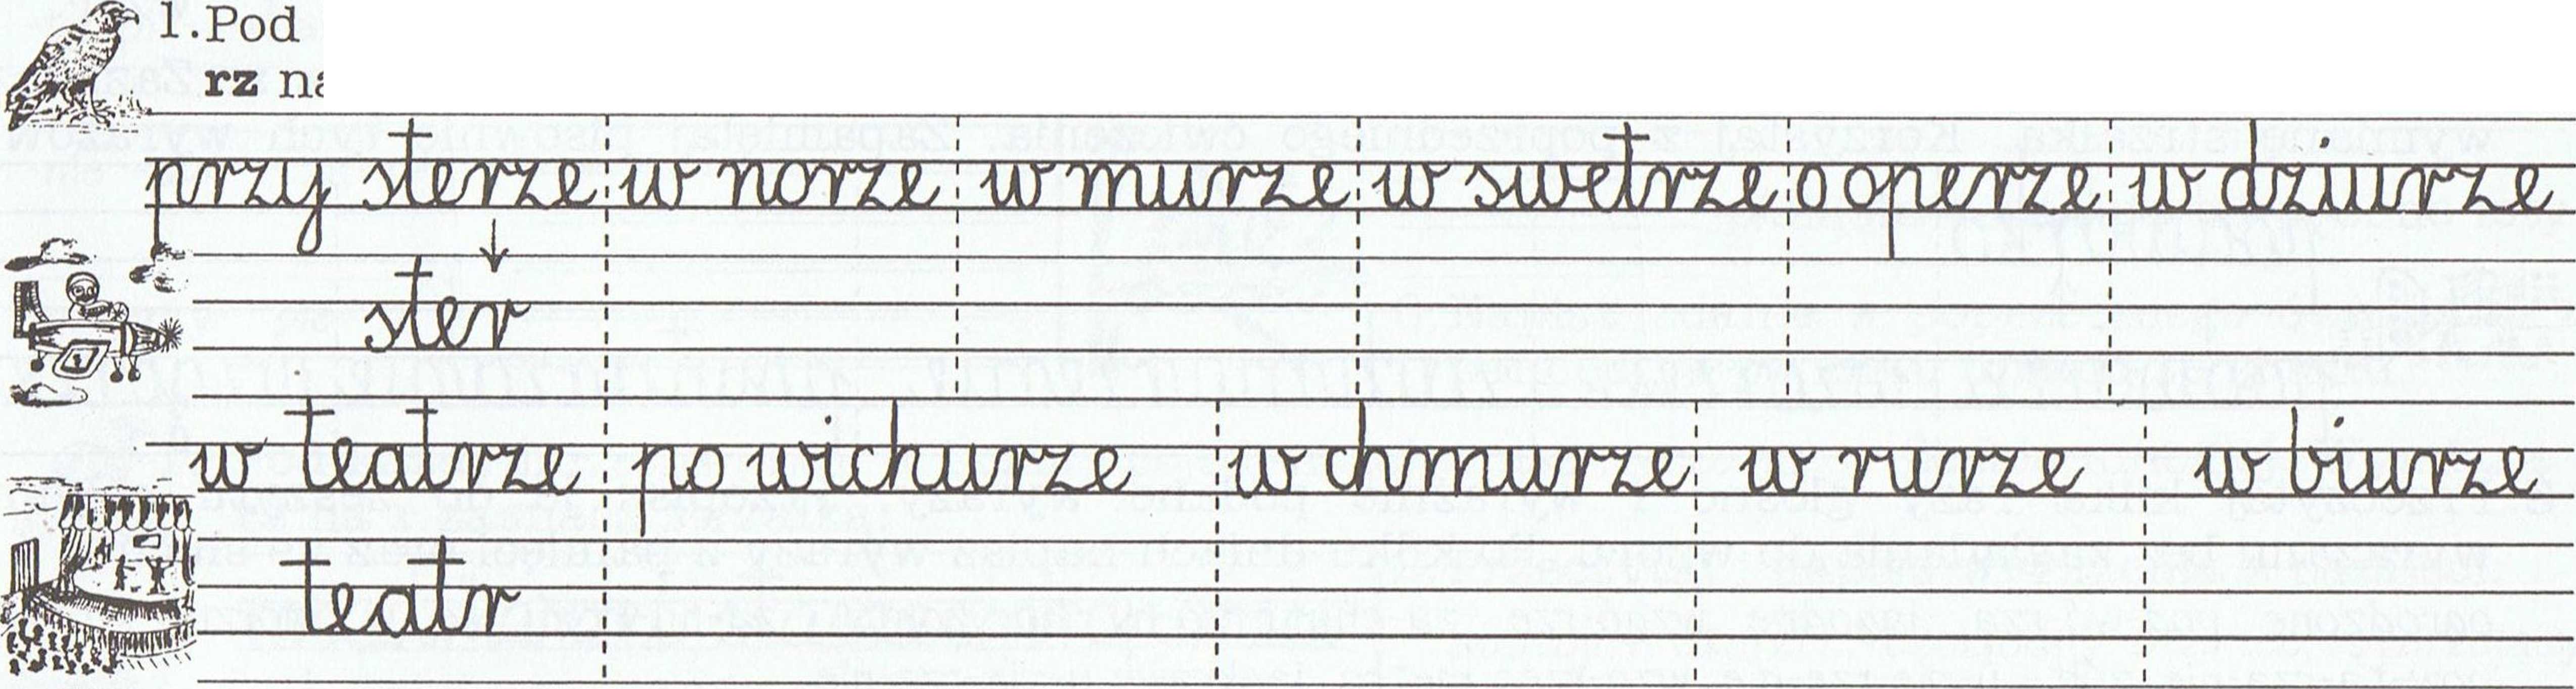 1. Pod
rz na
przy sterze w norze w murze w swetrze o operze w dziurze
↓
ster
w teatrze po wichurze w chmurze w rurze w biurze
teatr